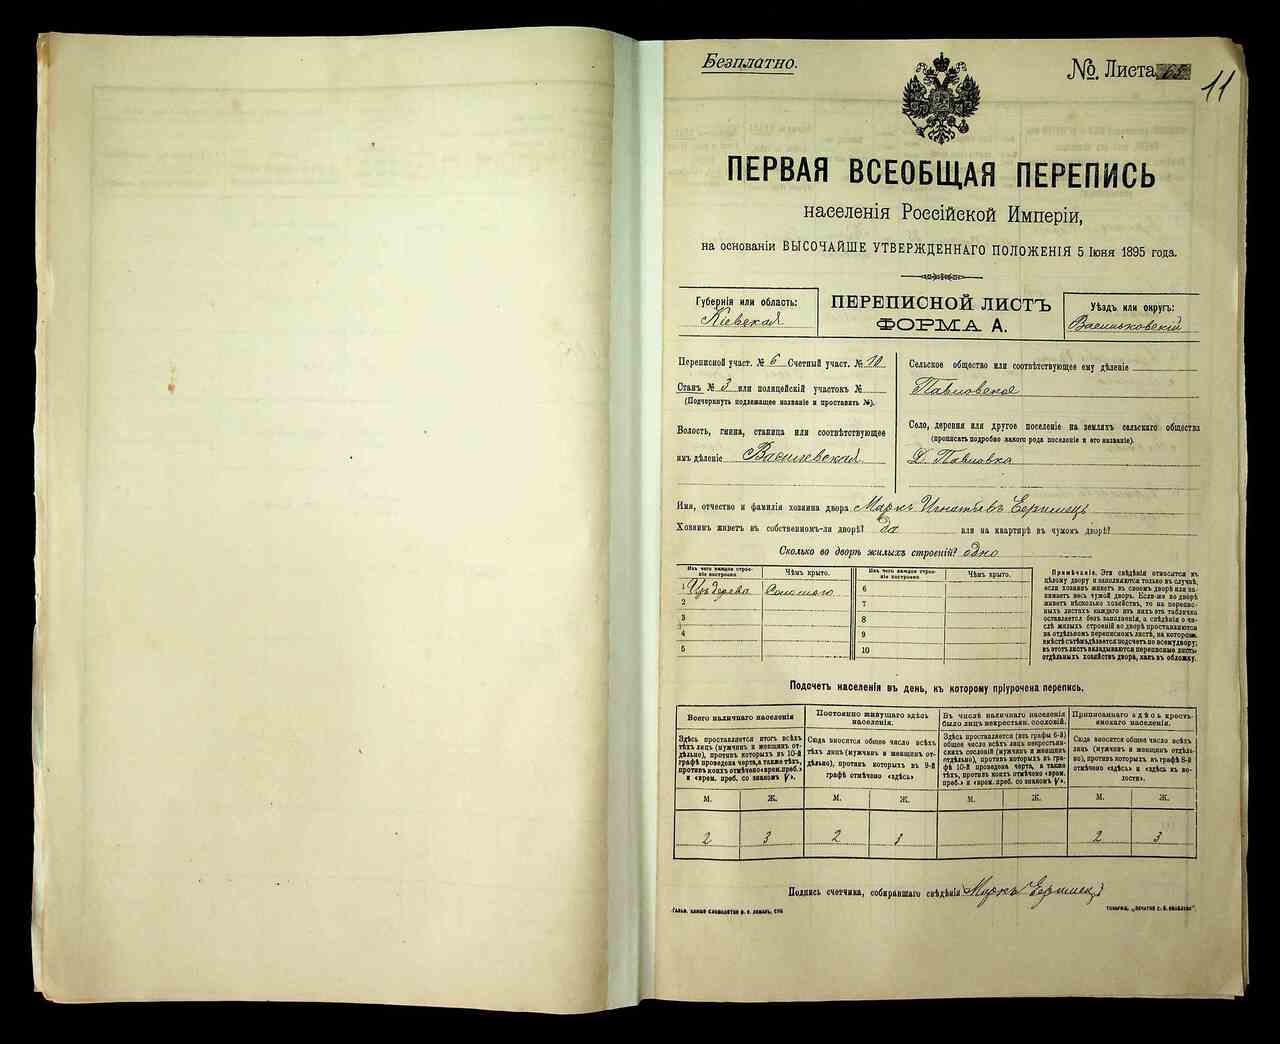 Безплатно.
№. Листа 65
11
ПЕРВАЯ ВСЕОБЩАЯ ПЕРЕПИСЬ
населенія Россійской Имперіи,
на основаніи ВЫСОЧАЙШЕ УТВЕРЖДЕННАГО ПОЛОЖЕНІЯ 5 Іюня 1895 года.
Губернія или область:
Кіевская
ПЕРЕПИСНОЙ ЛИСТЪ
ФОРМА А.
Уѣздъ или округъ:
Васильковскій
Переписной участ. № 6 Счетный участ. № 10
Станъ № 3 или полицейскій участокъ №
(Подчеркнуть подлежащее названіе и проставить №).
Волость, гмина, станица или соотвѣтствующее
имъ дѣленіе Василевская
Сельское общество или соотвѣтствующее ему дѣленіе
Павловское
Село, деревня или другое поселеніе на земляхъ сельскаго общества
(прописать подробно какого рода поселеніе и его названіе).
Д. Павловка
Имя, отчество и фамилія хозяина двора Маркъ Игнатіевъ
Хозяинъ живетъ въ собственномъ-ли дворѣ? да или на квартирѣ въ чужомъ дворѣ?
Сколько во дворѣ жилыхъ строеній? одно
Изъ чего каждое строеніе построено.
Чѣмъ крыто.
Изъ чего каждое строеніе построено.
Чѣмъ крыто.
1 Изъ дерева Соломою 6
2 7
3 8
4 9
5 10
Примѣчаніе. Эти свѣдѣнія относятся къ
цѣлому двору и заполняются только въ случаѣ,
если хозяинъ живетъ въ своемъ дворѣ или занимаетъ
весь чужой дворъ. Если-же во дворѣ
живетъ нѣсколько хозяйствъ, то на переписныхъ
листахъ каждаго изъ нихъ эта табличка
оставляется безъ заполненія, а свѣдѣнія о числѣ
жилыхъ строеній во дворѣ проставляются
на отдѣльномъ переписномъ листѣ, на которомъ
вмѣстѣ съ тѣмъ дѣлается подсчетъ по всему двору;
въ этотъ листъ вкладываются переписные листы
отдѣльныхъ хозяйствъ двора, какъ въ обложку.
Подсчетъ населенія въ день, къ которому пріурочена перепись.
Всего наличнаго населенія
Здѣсь проставляется итогъ всѣхъ
тѣхъ лицъ (мужчинъ и женщинъ отдѣльно),
противъ которыхъ въ 10-й
графѣ проведена черта, а также тѣхъ,
противъ коихъ отмѣчено «врем. преб.»
и «врем. преб. со знакомъ V».
Постоянно живущаго здѣсь
населенія.
Сюда вносится общее число всѣхъ
тѣхъ лицъ (мужчинъ и женщинъ отдѣльно),
противъ которыхъ въ 9-й
графѣ отмѣчено «здѣсь»
Въ числѣ наличнаго населенія
было лицъ некрестьян. сословій.
Здѣсь проставляется (изъ графы 6-й)
общее число всѣхъ лицъ некрестьянскихъ
сословій (мужчинъ и женщинъ
отдѣльно), противъ которыхъ въ графѣ
10-й проведена черта, а также
тѣхъ, противъ коихъ отмѣчено «врем.
преб.» и «врем. преб. со знакомъ V».
Приписаннаго здѣсь крестьянскаго
населенія.
Сюда вносится общее число всѣхъ
лицъ (мужчинъ и женщинъ отдѣльно),
противъ которыхъ въ графѣ 8-й
отмѣчено «здѣсь» и «здѣсь въ волости».
М. Ж. М. Ж. М. Ж. М. Ж.
2 3 2 3 2 3
Подпись счетчика, собиравшаго свѣдѣнія Маркъ